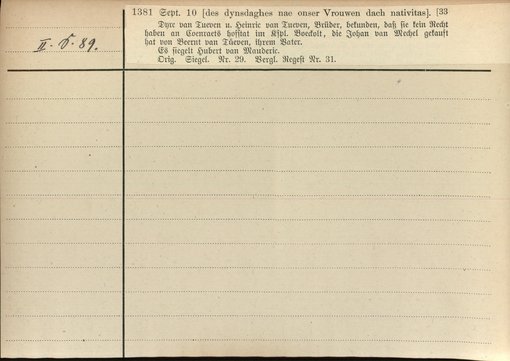 1381 Sept. 10 [des dynsdaghes nae onser Vrouwen dach nativitas]. [33
Dyrc van Tueven u. Heinric van Tueven, Brüder, bekunden, daß sie kein Recht
haben an Coenraets hofstat im Kspl. Boekolt, die Johan van Mechel gekauft
hat von Bernt van Tüeven, ihrem Vater.
Es siegelt Hubert van Manderic.
Orig. Siegel. Nr. 29. Vergl. Regest Nr. 31.
II. 89.